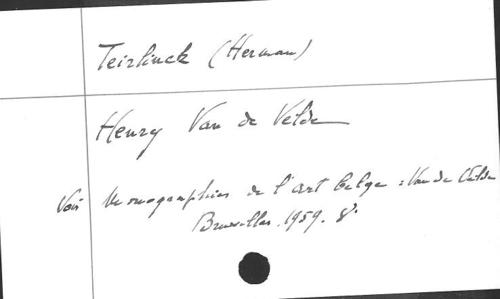 Teirlinck (Herman)
Henry Van de Velde
Voir Monographies de l'art belge : Van de Velde
Bruxelles. 1959. 8°.